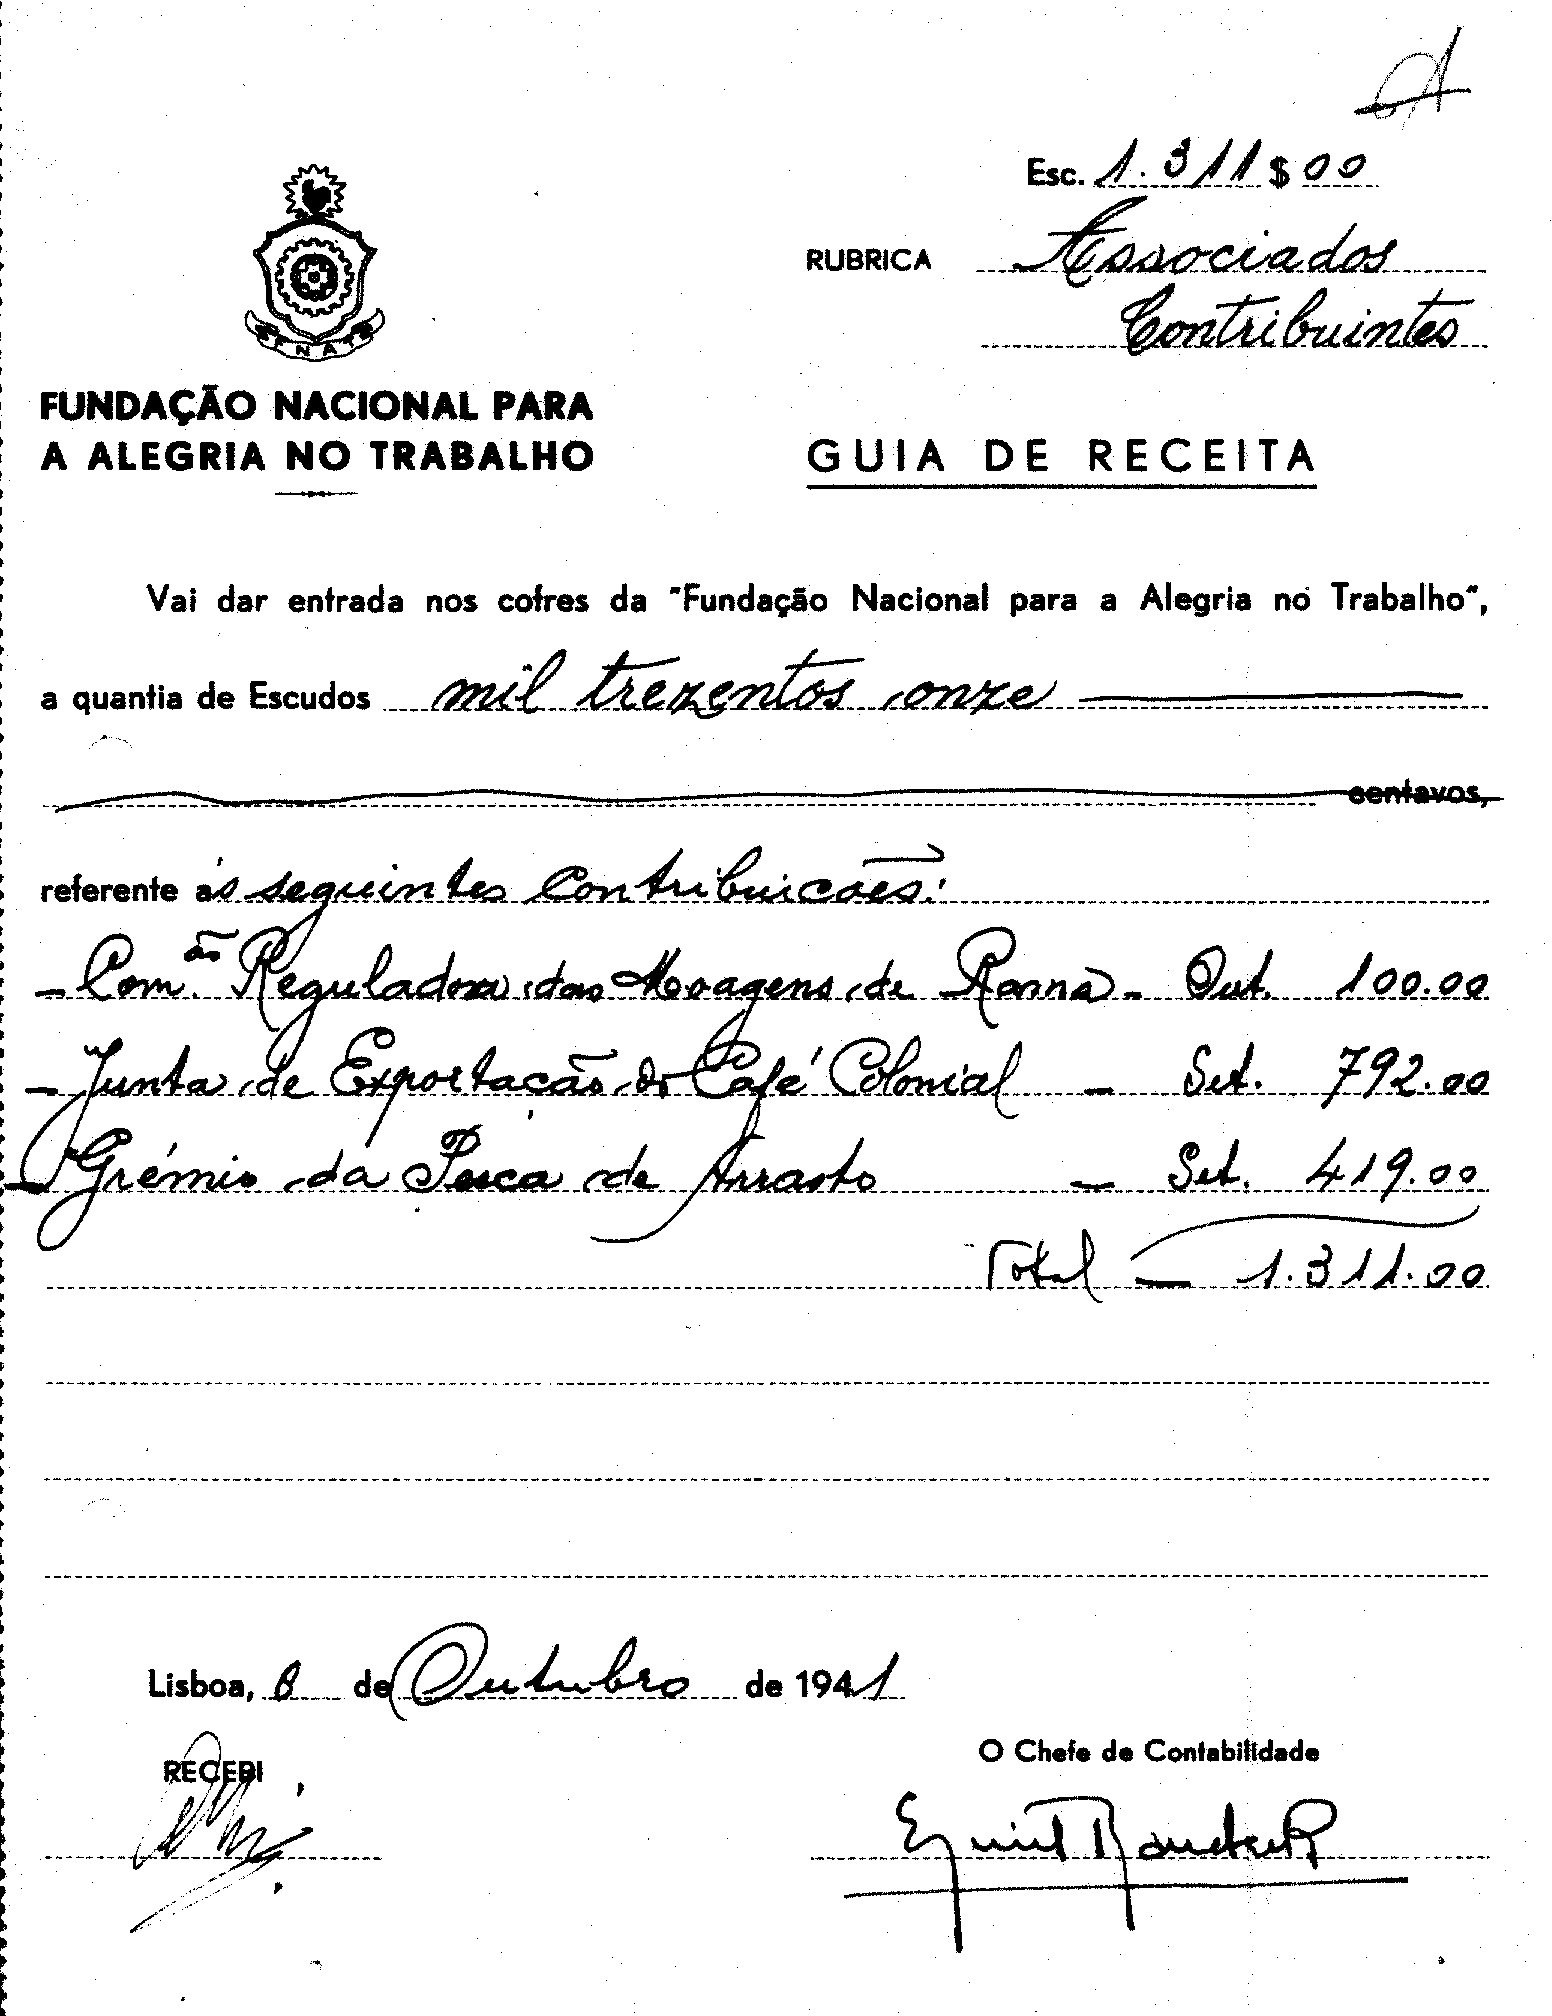 Esc. 1.311$00
RUBRICA Associados
Contribuintes
FENAT
FUNDAÇÃO NACIONAL PARA
A ALEGRIA NO TRABALHO
GUIA DE RECEITA
Vai dar entrada nos cofres da "Fundação Nacional para a Alegria no Trabalho",
a quantia de Escudos mil trezentos onze
centavos,
referente ás seguintes contribuicões:
- Com.ão Reguladora das Moagens de Rama - Out. 100.00
- Junta de Exportacão do Café Colonial - Set. 792.00
- Grémio da Pesca de Arrasto - Set. 419.00
Total - 1.311.00
Lisboa, 8 de Outubro de 1941
RECEBI
O Chefe de Contabilidade